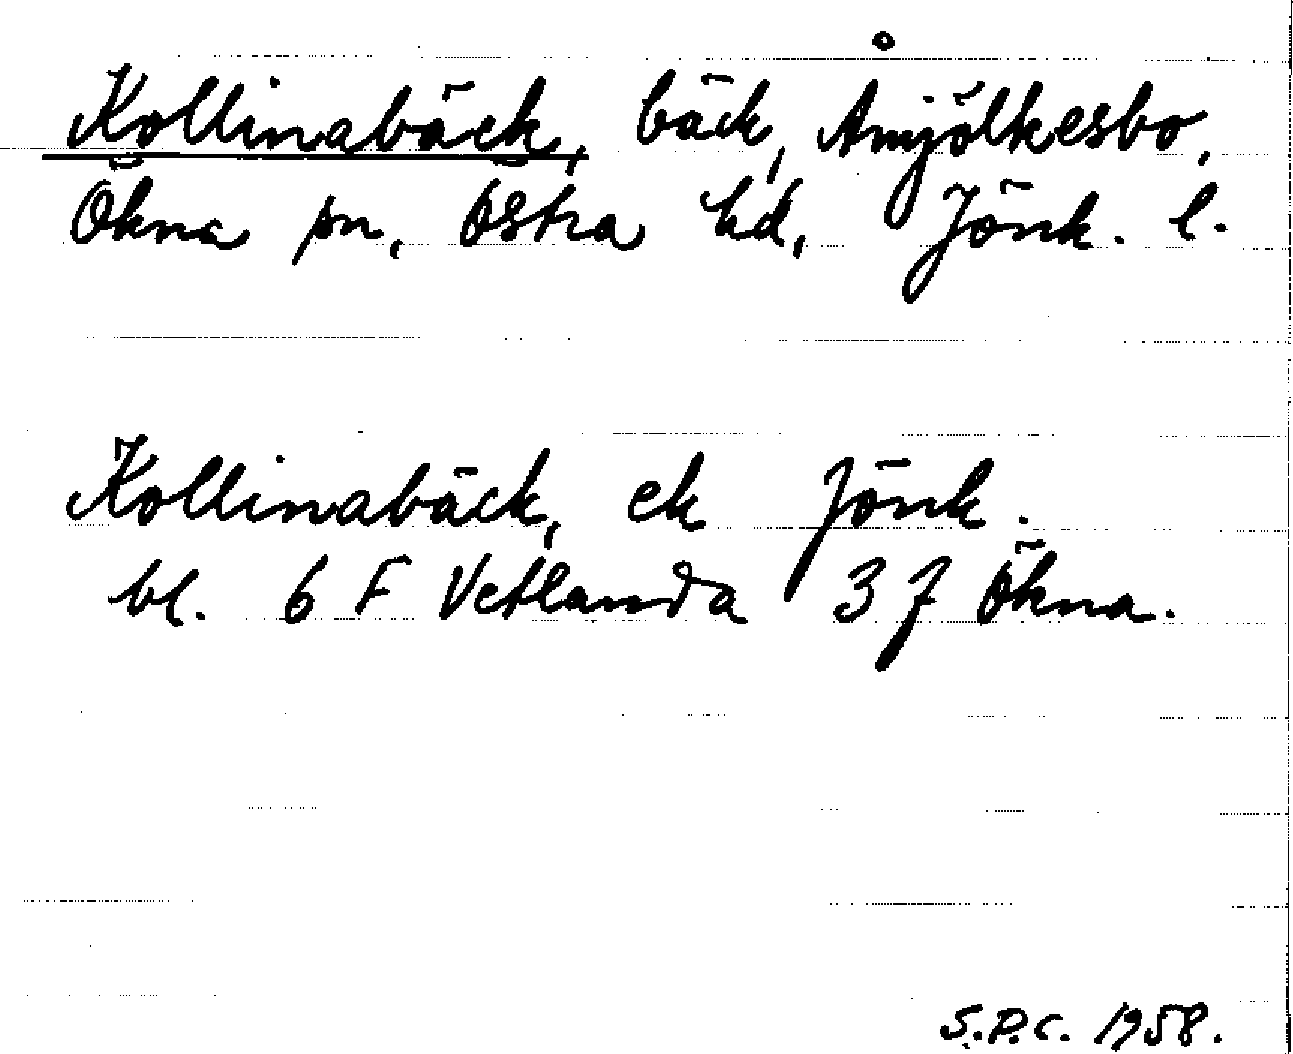 Kollinabäck, bäck, Åmjölkesbo,
Ökna sn, Östra hd, Jönk. l.
Kollinabäck, ek Jönk.
bl. 6 F Vetlanda 3 J Ökna.
S.P.C. 1958.